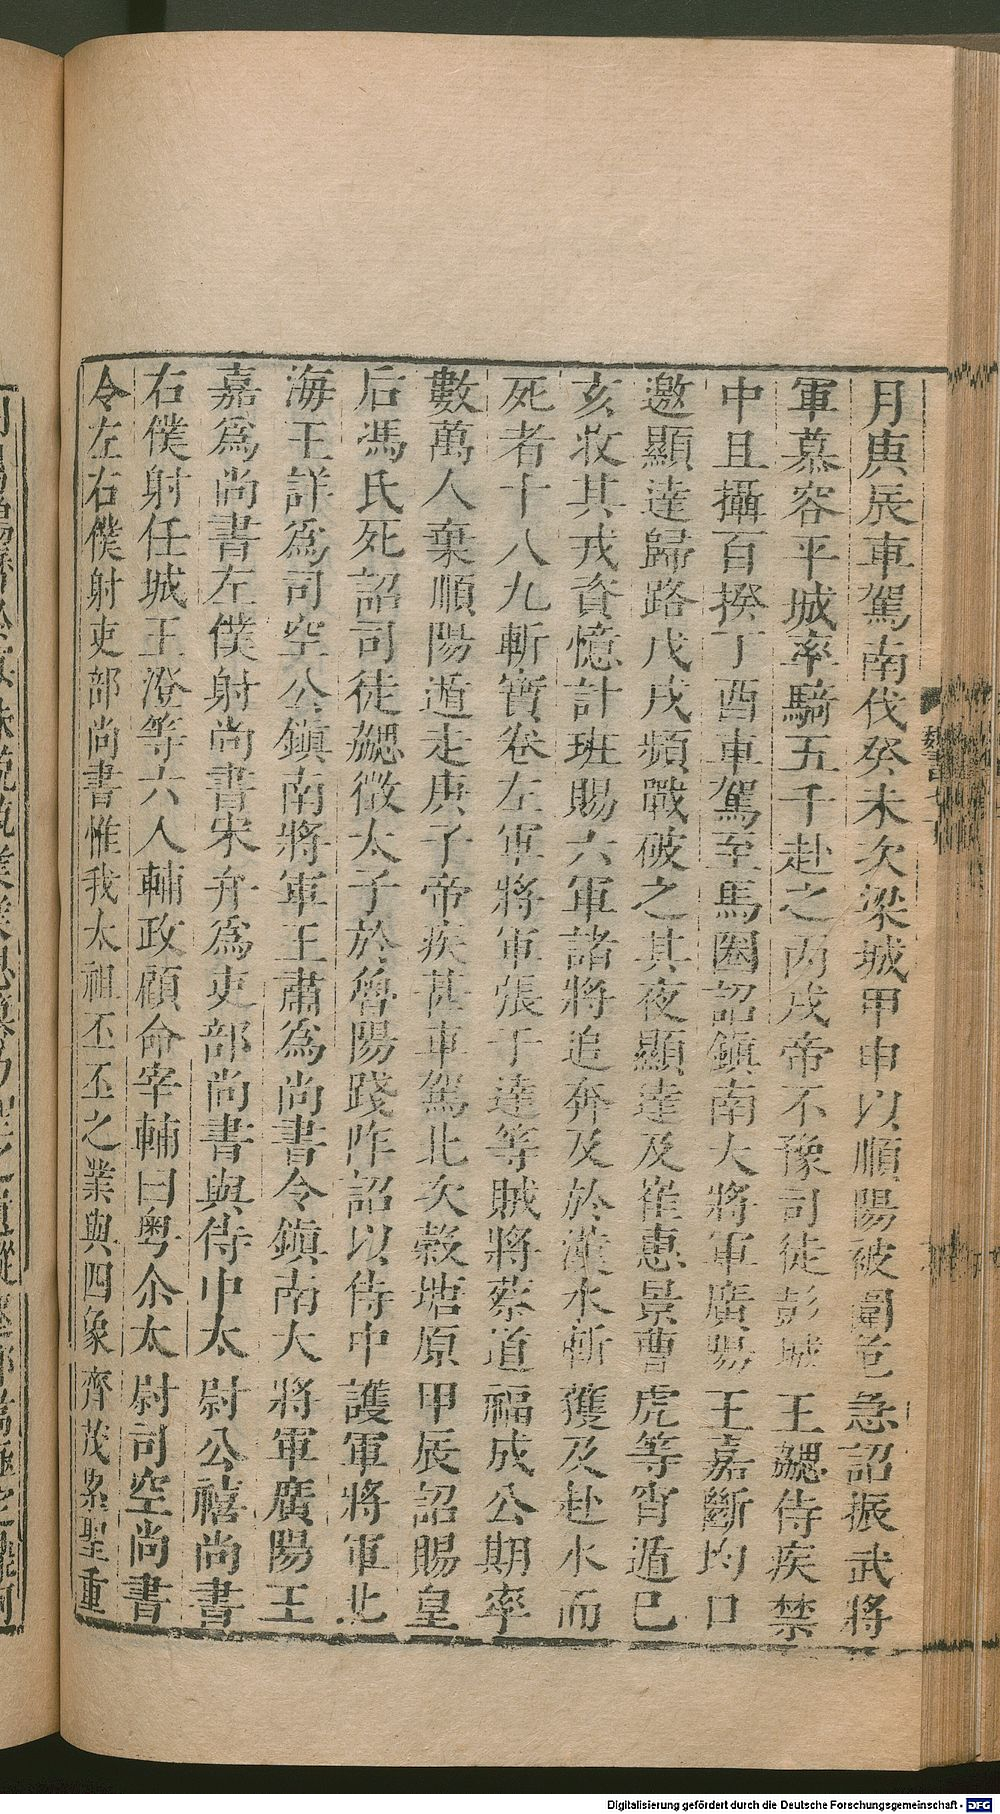 月庚辰車駕南伐癸未次梁城甲申以順陽被圍危急詔振武將
軍慕容平城率騎五千赴之丙戌帝不豫司徒彭城王勰侍疾禁
中且攝百揆丁酉車駕至馬圈詔鎮南大將軍廣陽王嘉斷均口
邀顯達歸路戊戌頻戰破之其夜顯達及崔惠景曹虎等宵遁巳
亥收其戎資憶計班賜六軍諸將追奔及於漢水斬獲及赴水而
死者十八九斬寶卷左軍將軍張于達等賊將蔡道福成公期率
數萬人棄順陽遁走庚子帝疾甚車駕北次穀塘原甲辰詔賜皇
后馮氏死詔司徒勰徵太子於魯陽踐阼詔以侍中護軍將軍北
海王詳爲司空公鎮南將軍王肅爲尚書令鎮南大將軍廣陽王
嘉爲尚書左僕射尚書宋弁爲吏部尚書與侍中太尉公禧尚書
右僕射任城王澄等六人輔政顧命宰輔曰粤尒太尉司空尚書
令左右僕射吏部尚書惟我太祖丕丕之業與四象齊茂累聖重
Digitalisierung gefördert durch die Deutsche Forschungsgemeinschaft - DFG